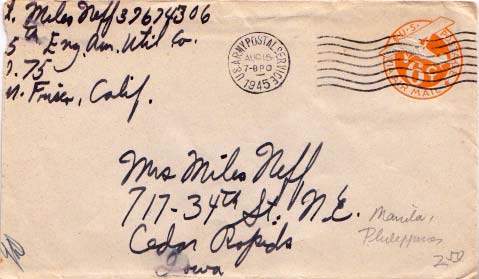 t. Miles Neff 37674306
5th Eng. Am. Util Co.
O. 75
n. Frisco, Calif.
U.S. ARMY POSTAL SERVICE
AUG 15
7-8 PD
1945
U.S. POSTAGE
6¢
AIR MAIL
Mrs Miles Neff
717-34th St. N.E.
Cedar Rapids
Iowa
Manila,
Philippines
2.50